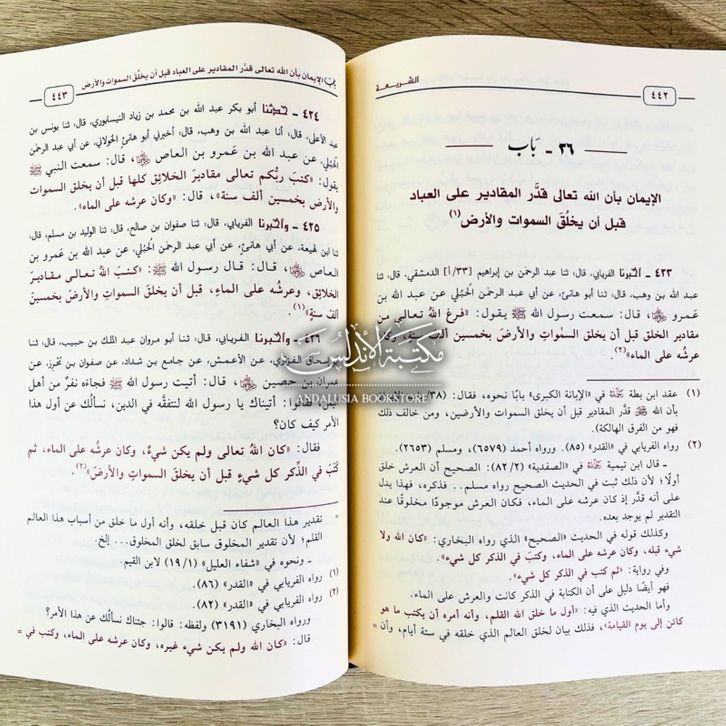 ٤٤٢
الشريعة
٣٦ - بَاب
الإيمان بأن الله تعالى قدَّر المقادير على العباد
قبل أن يخلُقَ السموات والأرض(١)
٤٢٣ - أخبرنا الفريابي، قال: ثنا عبد الرحمن بن إبراهيم [٣٣/أ] الدمشقي، قال: ثنا
عبد الله بن وهب، قال: ثنا أبو هانئ، عن أبي عبد الرحمن الحُبُلي عن عبد الله بن
عَمرو ﷺ، قال: سمعت رسول الله ﷺ يقول: «فرغَ اللهُ تعالى من
مقادير الخلق قبل أن يخلق السمٰوات والأرض بخمسين ألف سنة،
عرشُه على الماء».(٢)
(١) عقد ابن بطة في «الإبانة الكبرى» بابًا نحوه، فقال: (٣٨
بأن الله ﷻ قدَّر المقادير قبل أن يخلق السموات والأرضين، ومن خالف ذلك
فهو من الفرق الهالكة).
(٢) رواه الفريابي في «القدر» (٨٥). ورواه أحمد (٦٥٧٩)، ومسلم (٢٦٥٣).
ـ قال ابن تيمية في «الصفدية» (٨٢/٢): الصحيح أن العرش خلق
أولًا؛ لأن ذلك ثبت في الحديث الصحيح رواه مسلم.. فذكره، فهذا يدل
على أنه قدَّر إذ كان عرشه على الماء، فكان العرش موجودًا مخلوقًا عند
التقدير لم يوجد بعده.
وكذلك قوله في الحديث «الصحيح» الذي رواه البخاري: «كان الله ولا
شيء قبله، وكان عرشه على الماء، وكتبَ في الذكر كل شيء».
وفي رواية: «ثم كتب في الذكر كل شيء».
فهو أيضًا دليل على أن الكتابة في الذكر كانت والعرش على الماء.
وأما الحديث الذي فيه: «أول ما خلق الله القلم، وأنه أمره أن يكتب ما هو
كائن إلى يوم القيامة»، فذلك بيان لخلق العالم الذي خلقه في ستة أيام، وأن =
باب الإيمان بأن الله تعالى قدَّر المقادير على العباد قبل أن يخلُق السموات والأرض
٤٤٣
٤٢٤ - حدثنا أبو بكر عبد الله بن محمد بن زياد النيسابوري، قال: ثنا يونس بن
عبد الأعلى، قال: أنا عبد الله بن وهب، قال: أخبرني أبو هانئ الخولاني، عن أبي عبد الرحمن
الحُبُلي، عن عبد الله بن عَمرو بن العاص، قال: سمعت النبي ﷺ
يقول: «كتبَ ربُّكم تعالى مقاديرَ الخلائق كلها قبل أن يخلق السموات
والأرض بخمسين ألف سنة»، قال: «وكان عرشه على الماء».
٤٢٥ - وأخبرنا الفريابي، قال: ثنا صفوان بن صالح، قال: ثنا الوليد بن مسلم، قال:
ثنا ابن لهيعة، عن أبي هانئ، عن أبي عبد الرحمن الحُبُلي، عن عبد الله بن عَمرو بن
العاص، قال: قال رسول الله ﷺ: «كتبَ اللهُ تعالى مقاديرَ
الخلائق، وعرشُه على الماءِ، قبل أن يخلقَ السموات والأرضَ بخمسينَ
ألف سنةٍ».(١)
٤٢٦ - وأخبرنا الفريابي، قال: ثنا أبو مروان عبد الملك بن حبيب، قال: ثنا
إسحاق الفزاري، عن الأعمش، عن جامع بن شداد، عن صفوان بن محرز، عن
عمران بن حصين، قال: أتيت رسول الله ﷺ فجاءَه نفرٌ من أهل
اليمن، قالوا: أتيناك يا رسول الله لنتفقَّه في الدين، نسألُك عن أول هذا
الأمر كيف كان؟
فقال: «كان اللهُ تعالى ولم يكن شيءٌ، وكان عرشُه على الماء، ثم
كتبَ في الذِّكر كل شيءٍ قبل أن يخلقَ السمواتِ والأرضَ».(٢)
= تقدير هذا العالم كان قبل خلقه، وأنه أول ما خلق من أسباب هذا العالم
القلم؛ لأن تقدير المخلوق سابق لخلق المخلوق... إلخ.
ـ ونحوه في «شفاء العليل» (١٩/١) لابن القيم.
(١) رواه الفريابي في «القدر» (٨٦).
(٢) رواه الفريابي في «القدر» (٨٢).
ورواه البخاري (٣١٩١) ولفظه: قالوا: جئناك نسألُك عن هذا الأمر؟
قال: «كان الله ولم يكن شيء غيره، وكان عرشه على الماء، وكتب في =
مكتبة الأندلس
ANDALUSIA BOOKSTORE